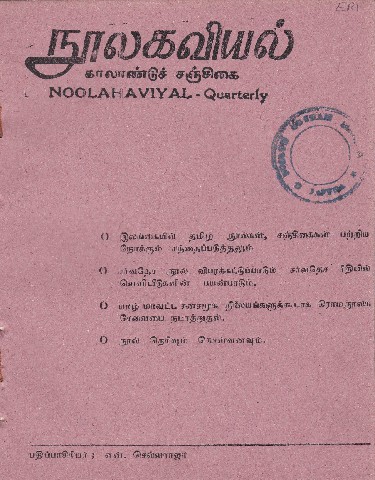 நூலகவியல்
காலாண்டுச் சஞ்சிகை
NOOLAHAVIYAL - Quarterly
இலங்கையில் தமிழ் நூல்கள், சஞ்சிகைகள் பற்றிய
நோக்கும் சந்தைப்படுத்தலும்
சர்வதேச நூல் விபரக்கட்டுப்பாடும் சர்வதேச ரீதியில்
வெளியீடுகளின் பயன்பாடும்.
யாழ் மாவட்ட சனசமூக நிலையங்களுக்கூடாக கிராமநூலக
சேவையை நடாத்துதல்.
நூல் தெரிவும் கொள்வனவும்.
பதிப்பாசிரியர் : என். செல்வராஜா